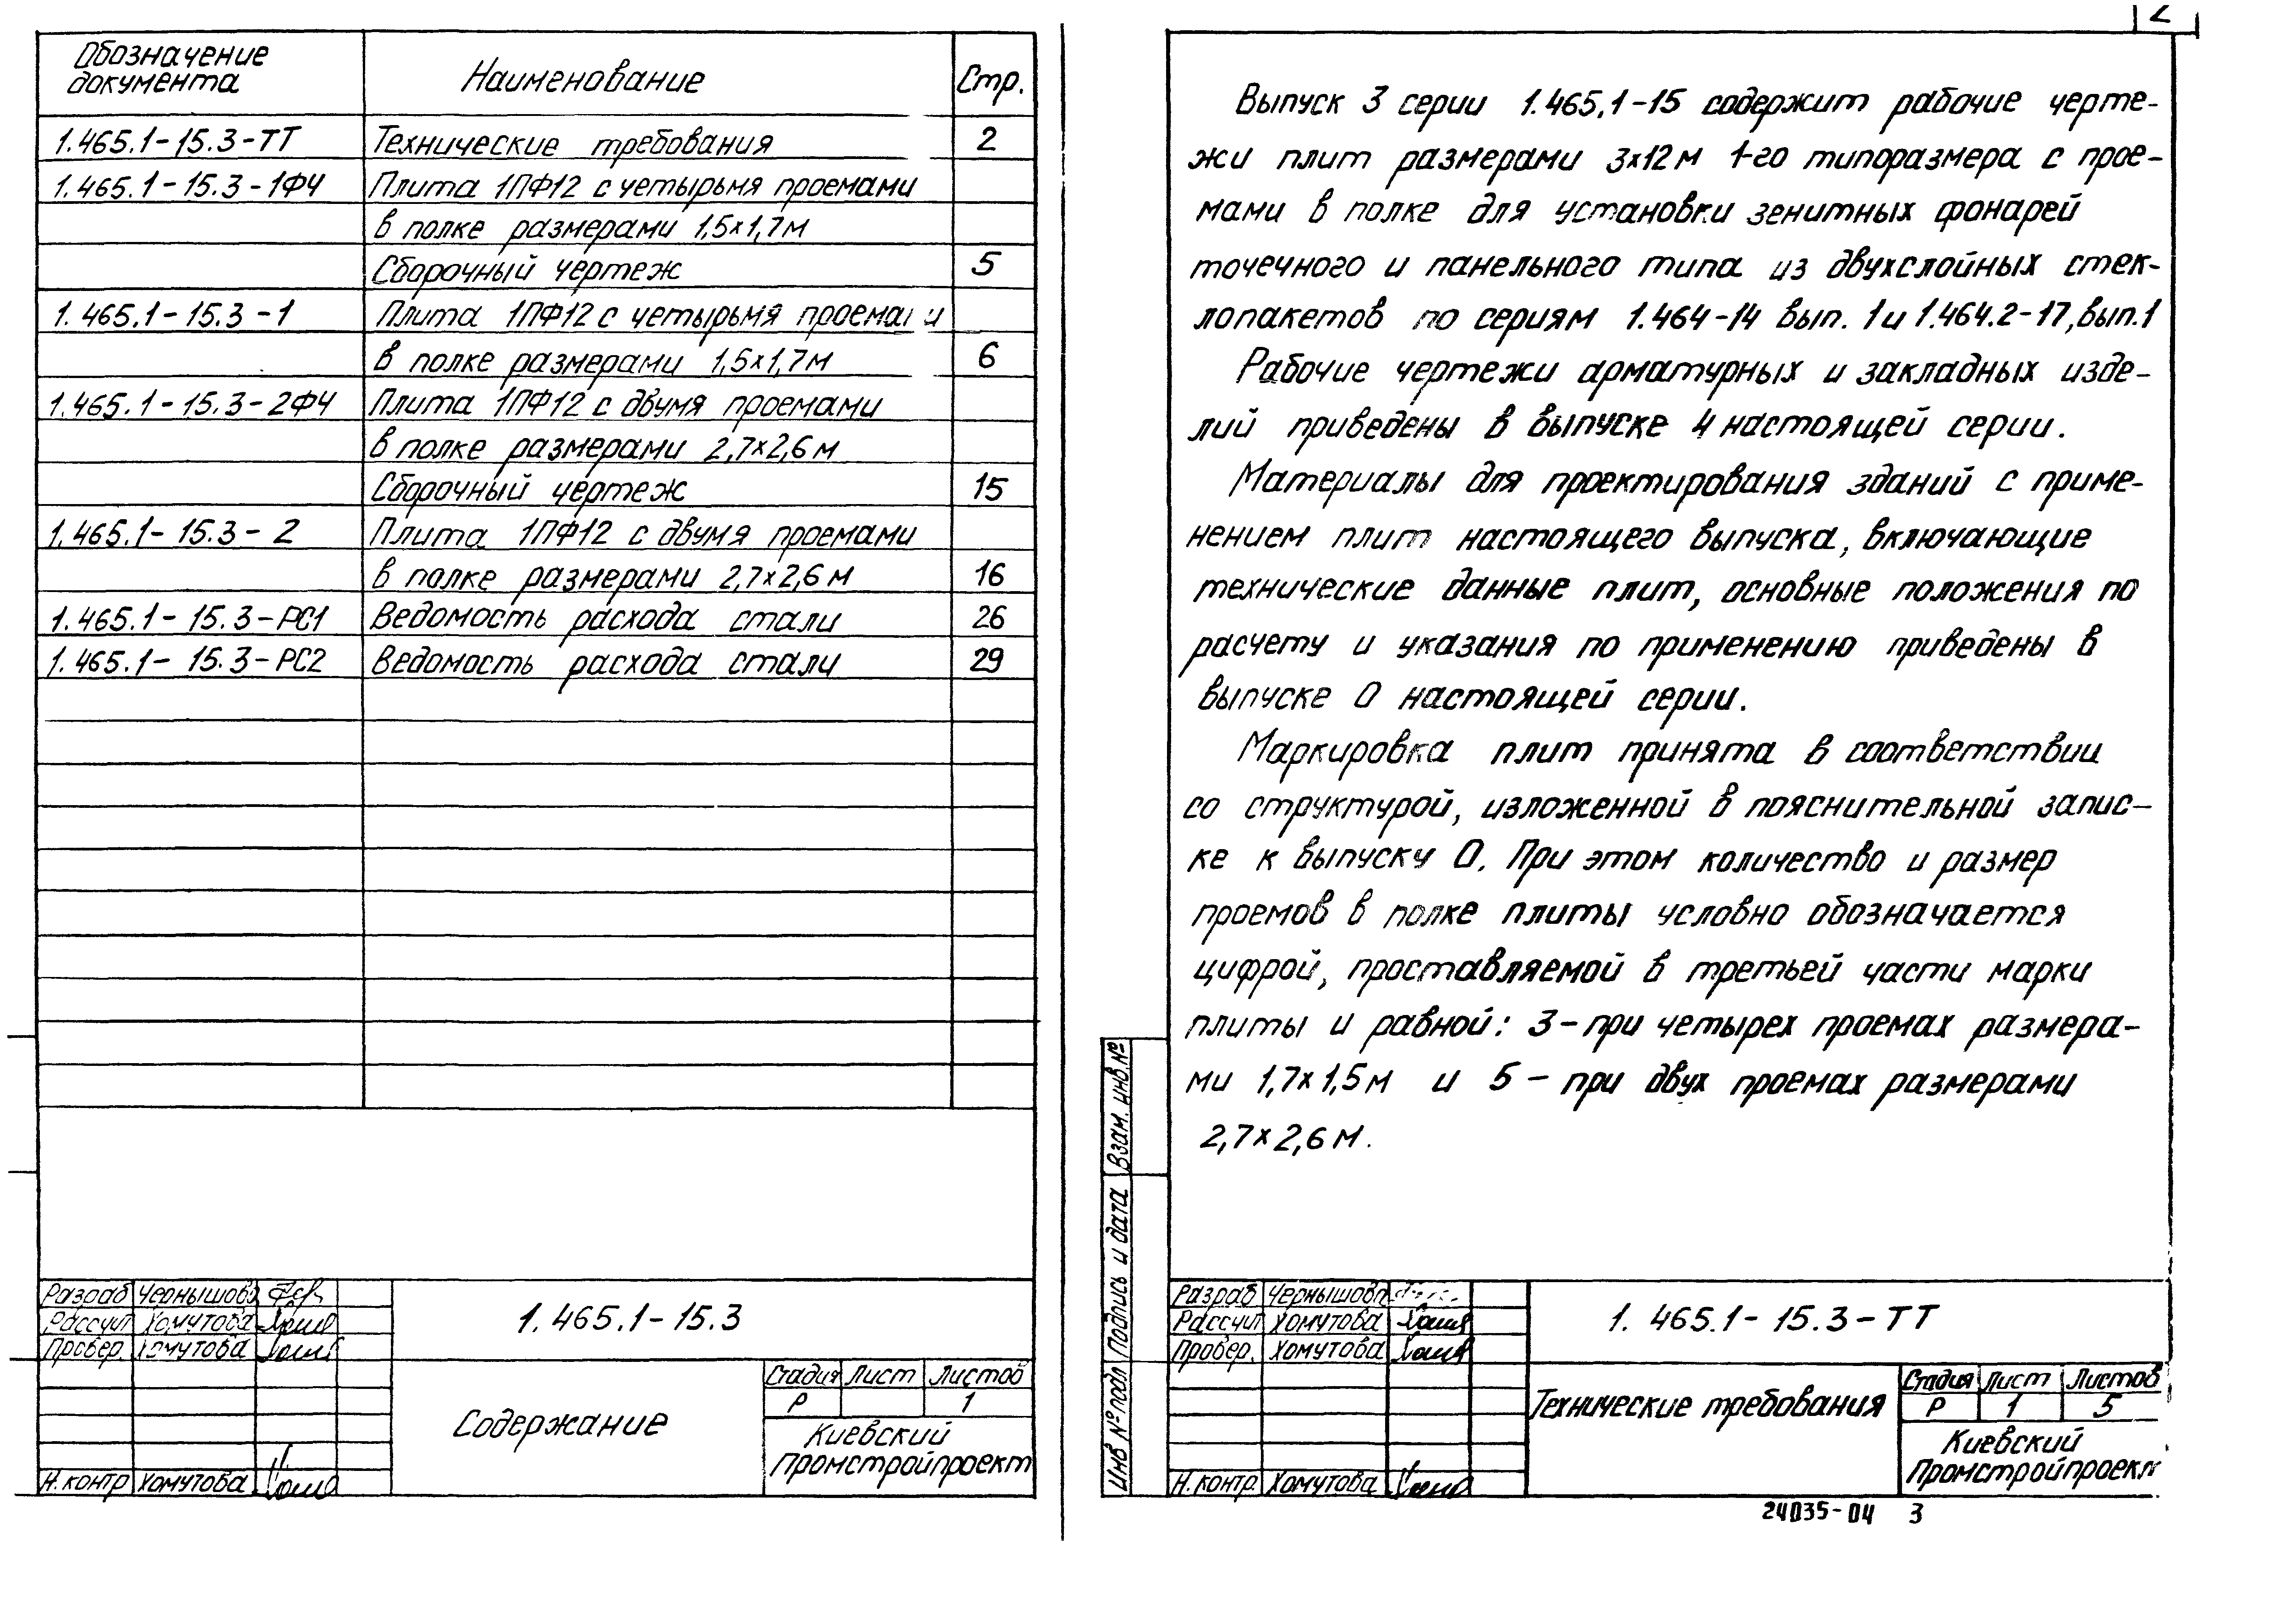 Обозначение документа Наименование Стр.
1.465.1-15.3-ТТ Технические требования 2
1.465.1-15.3-1ФЧ Плита 1ПФ12 с четырьмя проемами
в полке размерами 1,5х1,7м
Сборочный чертеж 5
1.465.1-15.3-1 Плита 1ПФ12 с четырьмя проемами
в полке размерами 1,5х1,7м 6
1.465.1-15.3-2ФЧ Плита 1ПФ12 с двумя проемами
в полке размерами 2,7х2,6м
Сборочный чертеж 15
1.465.1-15.3-2 Плита 1ПФ12 с двумя проемами
в полке размерами 2,7х2,6м 16
1.465.1-15.3-РС1 Ведомость расхода стали 26
1.465.1-15.3-РС2 Ведомость расхода стали 29
Разраб Чернышова
Рассчит Хомутова
Провер. Хомутова
Н.контр Хомутова
1.465.1-15.3
Содержание
Стадия Лист Листов
Р 1
Киевский
Промстройпроект
2
Выпуск 3 серии 1.465.1-15 содержит рабочие черте-
жи плит размерами 3х12м 1-го типоразмера с прое-
мами в полке для установки зенитных фонарей
точечного и панельного типа из двухслойных стек-
лопакетов по сериям 1.464-14 вып. 1 и 1.464.2-17, вып.1
Рабочие чертежи арматурных и закладных изде-
лий приведены в выпуске 4 настоящей серии.
Материалы для проектирования зданий с приме-
нением плит настоящего выпуска, включающие
технические данные плит, основные положения по
расчету и указания по применению приведены в
выпуске 0 настоящей серии.
Маркировка плит принята в соответствии
со структурой, изложенной в пояснительной запис-
ке к выпуску 0. При этом количество и размер
проемов в полке плиты условно обозначается
цифрой, проставляемой в третьей части марки
плиты и равной: 3-при четырех проемах размера-
ми 1,7х1,5м и 5-при двух проемах размерами
2,7х2,6м.
Взам. инв.№
Подпись и дата
Инв № подл
Разраб Чернышова
Рассчит Хомутова
Провер. Хомутова
Н.контр. Хомутова
1.465.1-15.3-ТТ
Технические требования
Стадия Лист Листов
Р 1 5
Киевский
Промстройпроект
24035-04 3